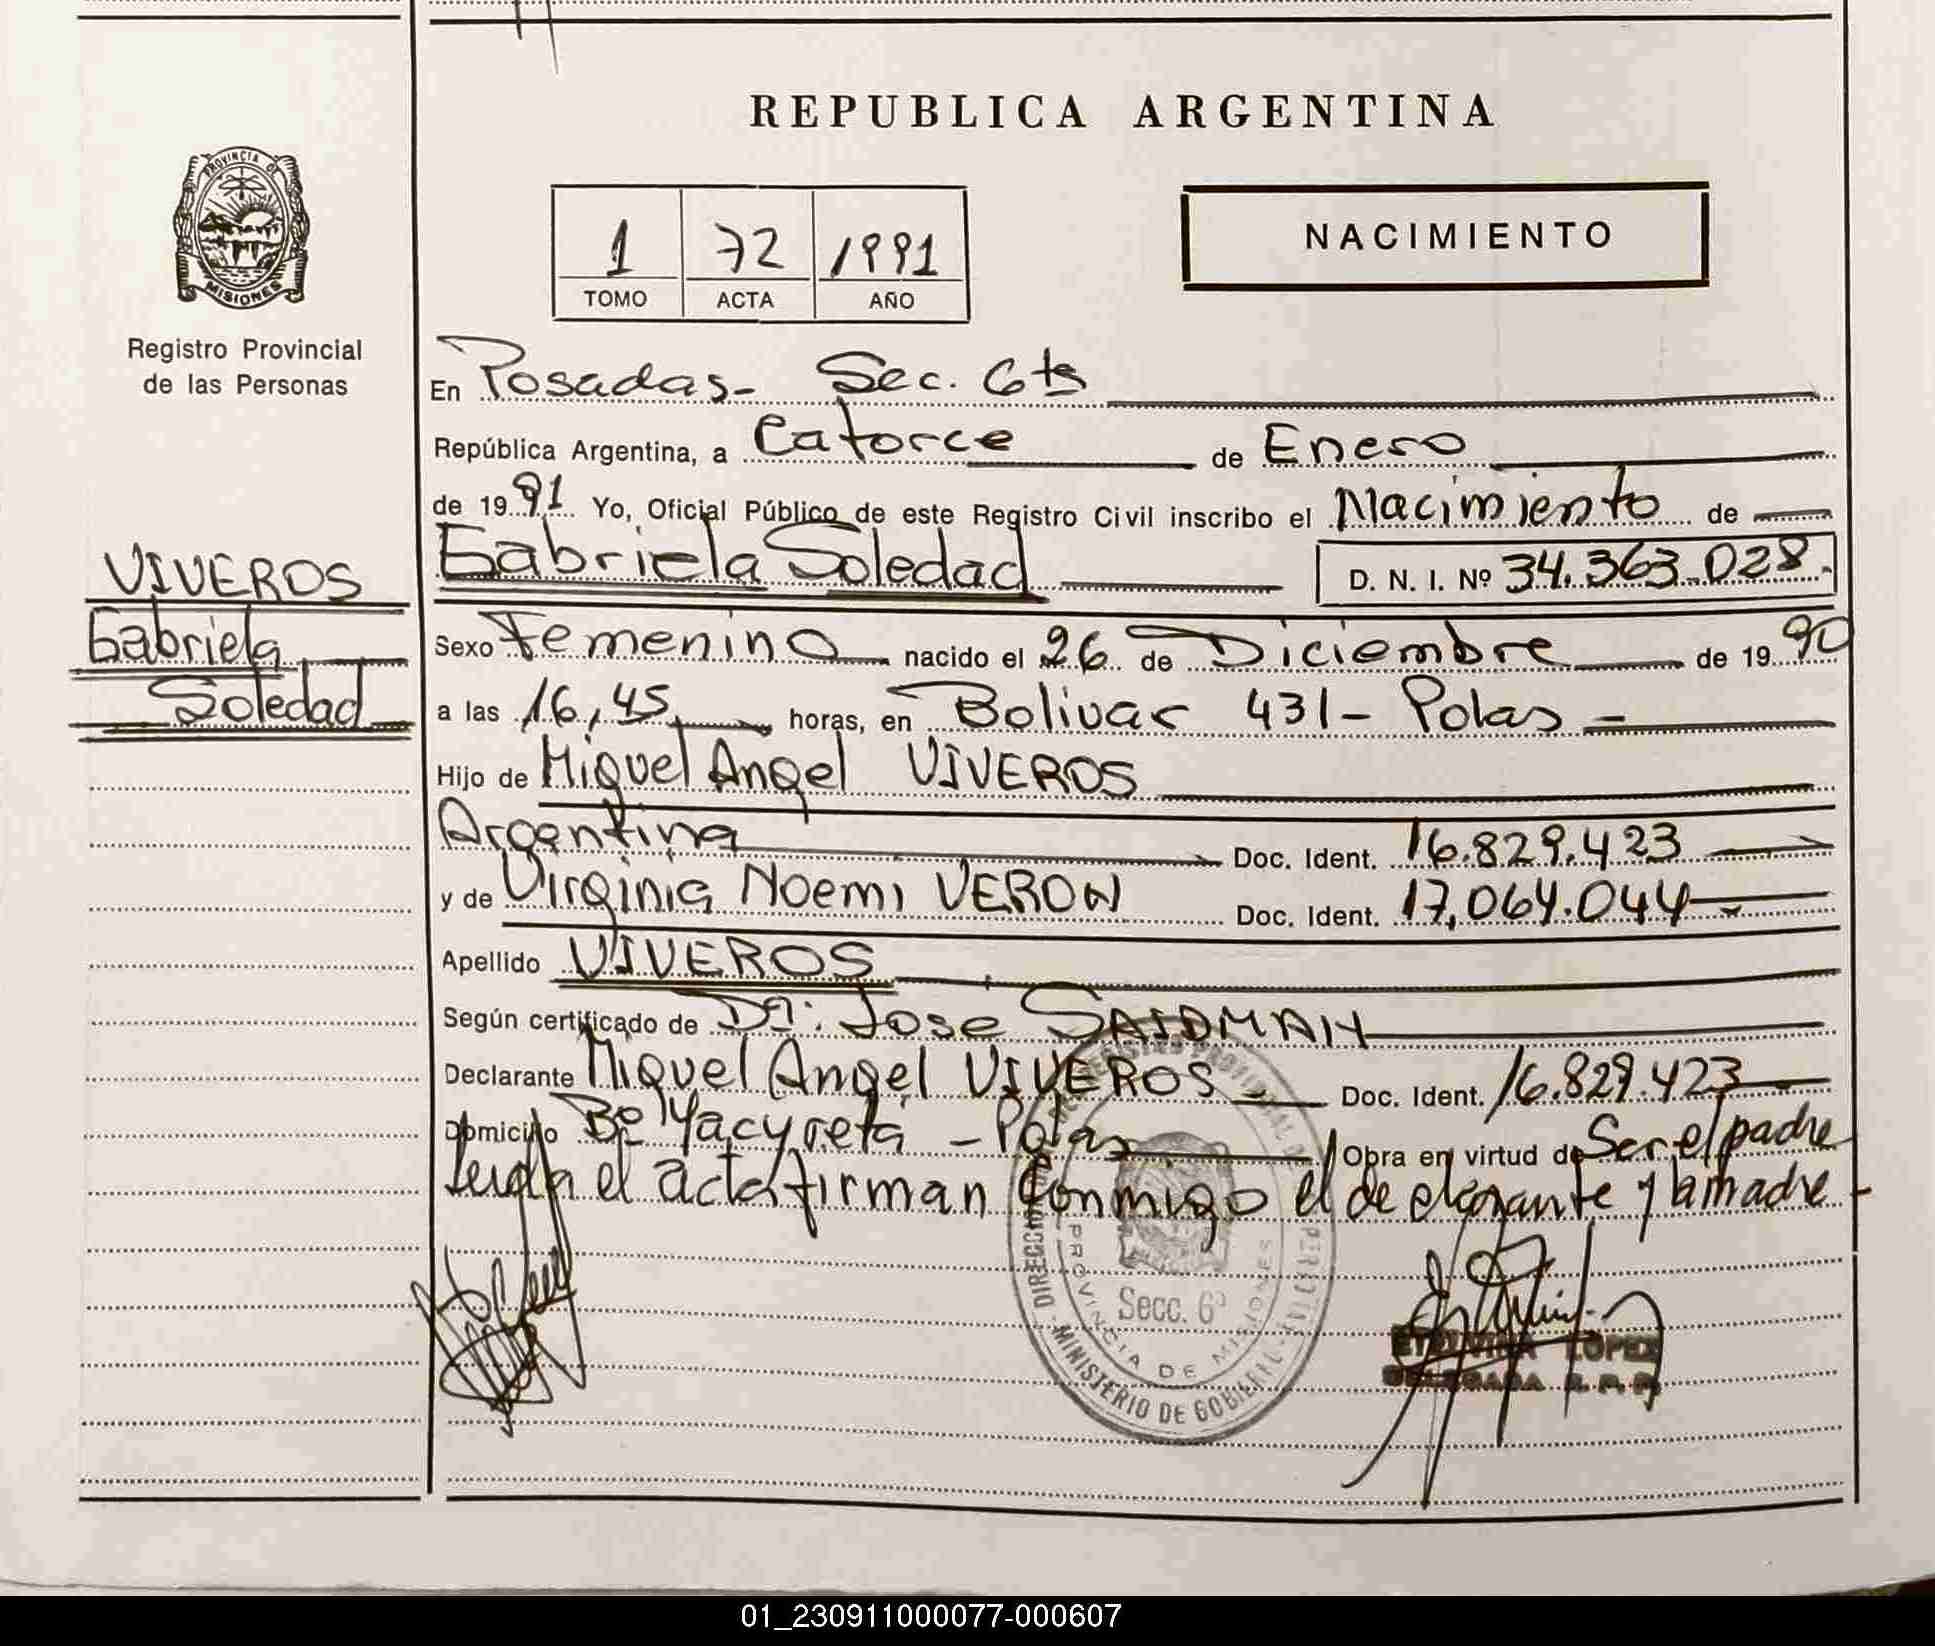 REPUBLICA ARGENTINA
PROVINCIA DE MISIONES
Registro Provincial
de las Personas
NACIMIENTO
1 72 1991
TOMO ACTA AÑO
En Posadas- Sec. 6ta
República Argentina, a Catorce de Enero
de 1991 Yo, Oficial Público de este Registro Civil inscribo el Nacimiento de
Gabriela Soledad D. N. I. Nº 34.363.028.
VIVEROS
Gabriela
Soledad
Sexo Femenino nacido el 26 de Diciembre de 1990
a las 16,45 horas, en Bolivar 431- Pdas -
Hijo de Miguel Angel VIVEROS
Argentina Doc. Ident. 16.829.423
y de Virginia Noemi VERON Doc. Ident. 17,064.044
Apellido VIVEROS
Según certificado de Dr: Jose SAIDMAN
Declarante Miguel Angel VIVEROS Doc. Ident. 16.829.423
Domicilio Bº Yacyreta - Pdas Obra en virtud de Ser el padre
Leida el acta firman conmigo el declarante y la madre -
DIRECCION REGISTRO PROVINCIAL DE PERSONAS
PROVINCIA DE MISIONES
Secc. 6ª
MINISTERIO DE GOBIERNO
ETELVINA LOPEZ
DELEGADA R. P. P.
01_230911000077-000607